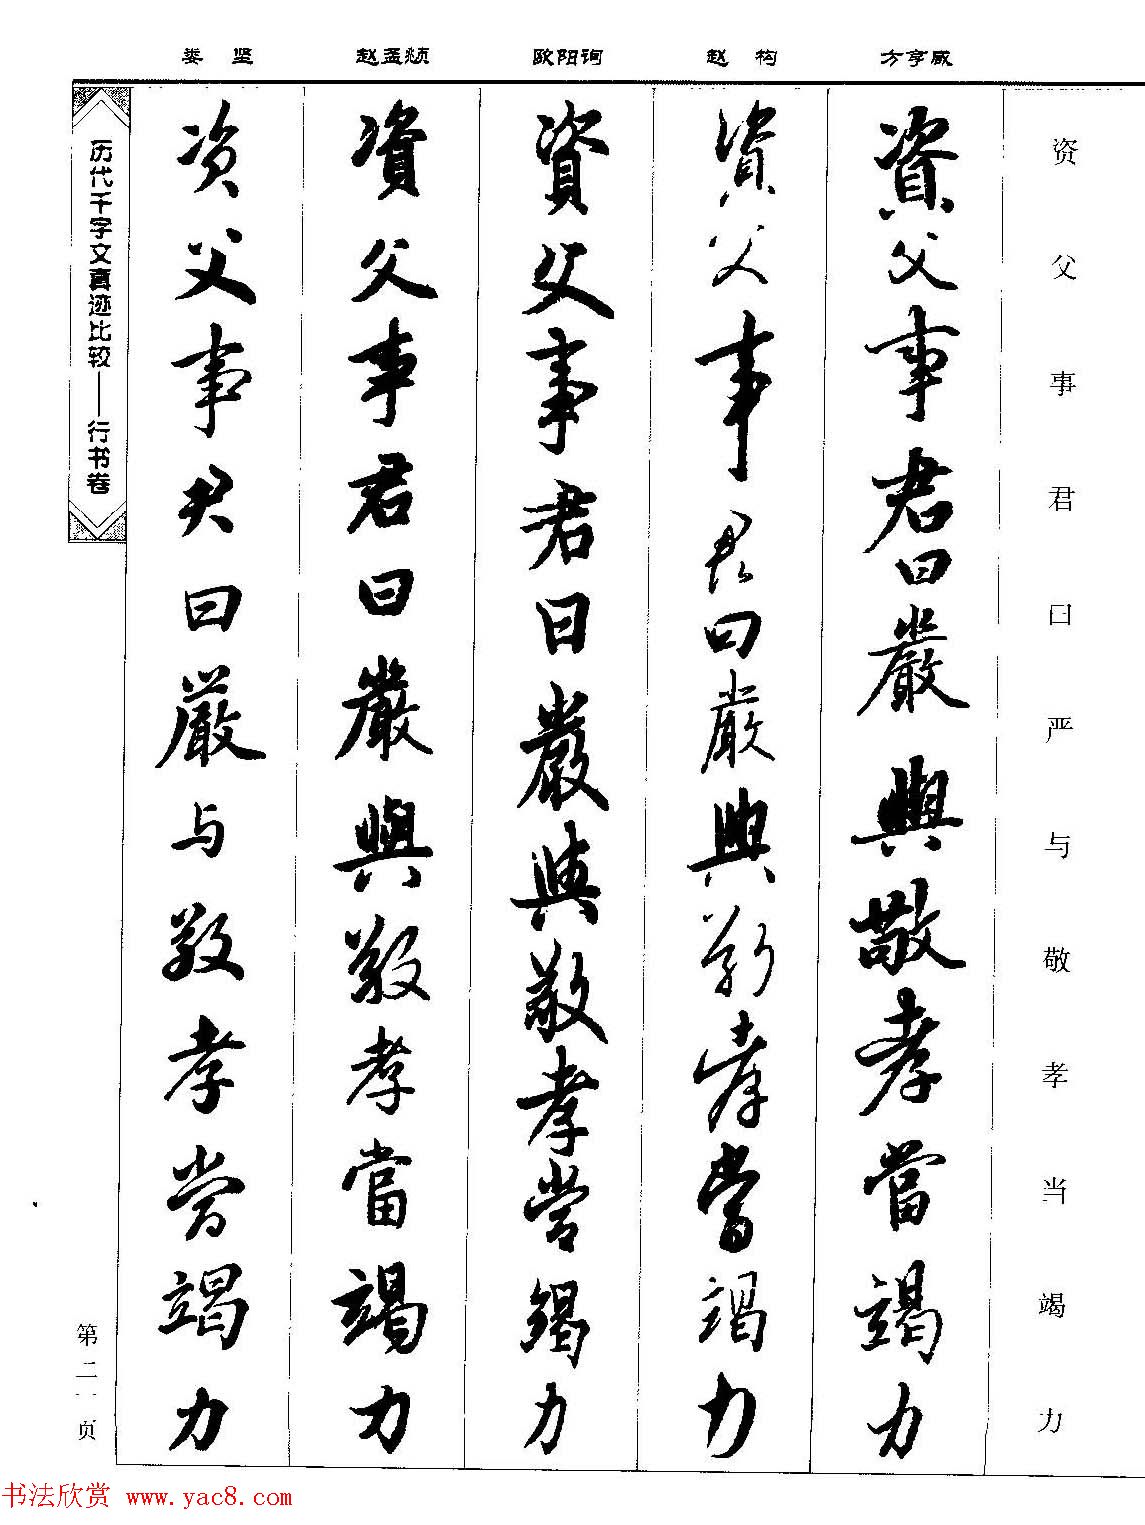 娄坚 赵孟頫 欧阳询 赵构 方亨咸
资父事君曰严与敬孝当竭力
資父事君曰嚴與敬孝當竭力
資父事君曰嚴與敬孝當竭力
資父事君曰嚴與敬孝當竭力
資父事君曰嚴與敬孝當竭力
资父事君曰嚴与敬孝當竭力
历代千字文真迹比较——行书卷
第二一页
书法欣赏 www.yac8.com